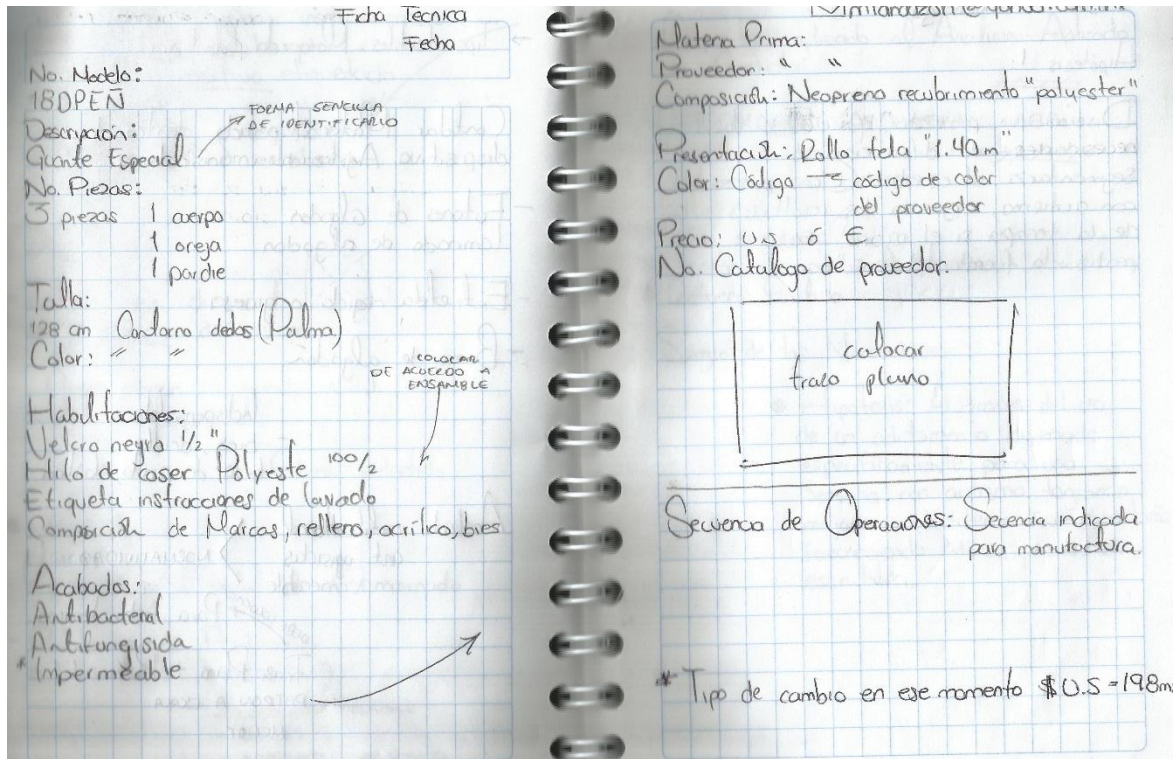 Ficha Tecnica
Fecha
No. Modelo:
18DPEÑ
FORMA SENCILLA
DE IDENTIFICARLO
Descripción:
Guante Especial
No. Piezas:
3 piezas 1 cuerpo
1 oreja
1
Talla:
128 cm Contorno dedos (Palma)
Color: " "
COLOCAR
DE ACUERDO A
ENSAMBLE
Habilitaciones:
Velcro negro 1/2"
Hilo de coser Polyeste 100/2
Etiqueta instrucciones de lavado
Composición de Marcas, relleno, acrílico, bies
Acabados:
Antibacteral
Antifungisida
* Impermeable
Materia Prima:
Proveedor: " "
Composición: Neopreno recubrimiento "polyester"
Presentación: Rollo tela "1.40m"
Color: Código código de color
del proveedor
Precio: U.S ó €
No. Catalogo de proveedor.
colocar
trazo plumo
Secuencia de Operaciones: Secencia indicada
para manufactura.
* Tipo de cambio en ese momento $U.S =